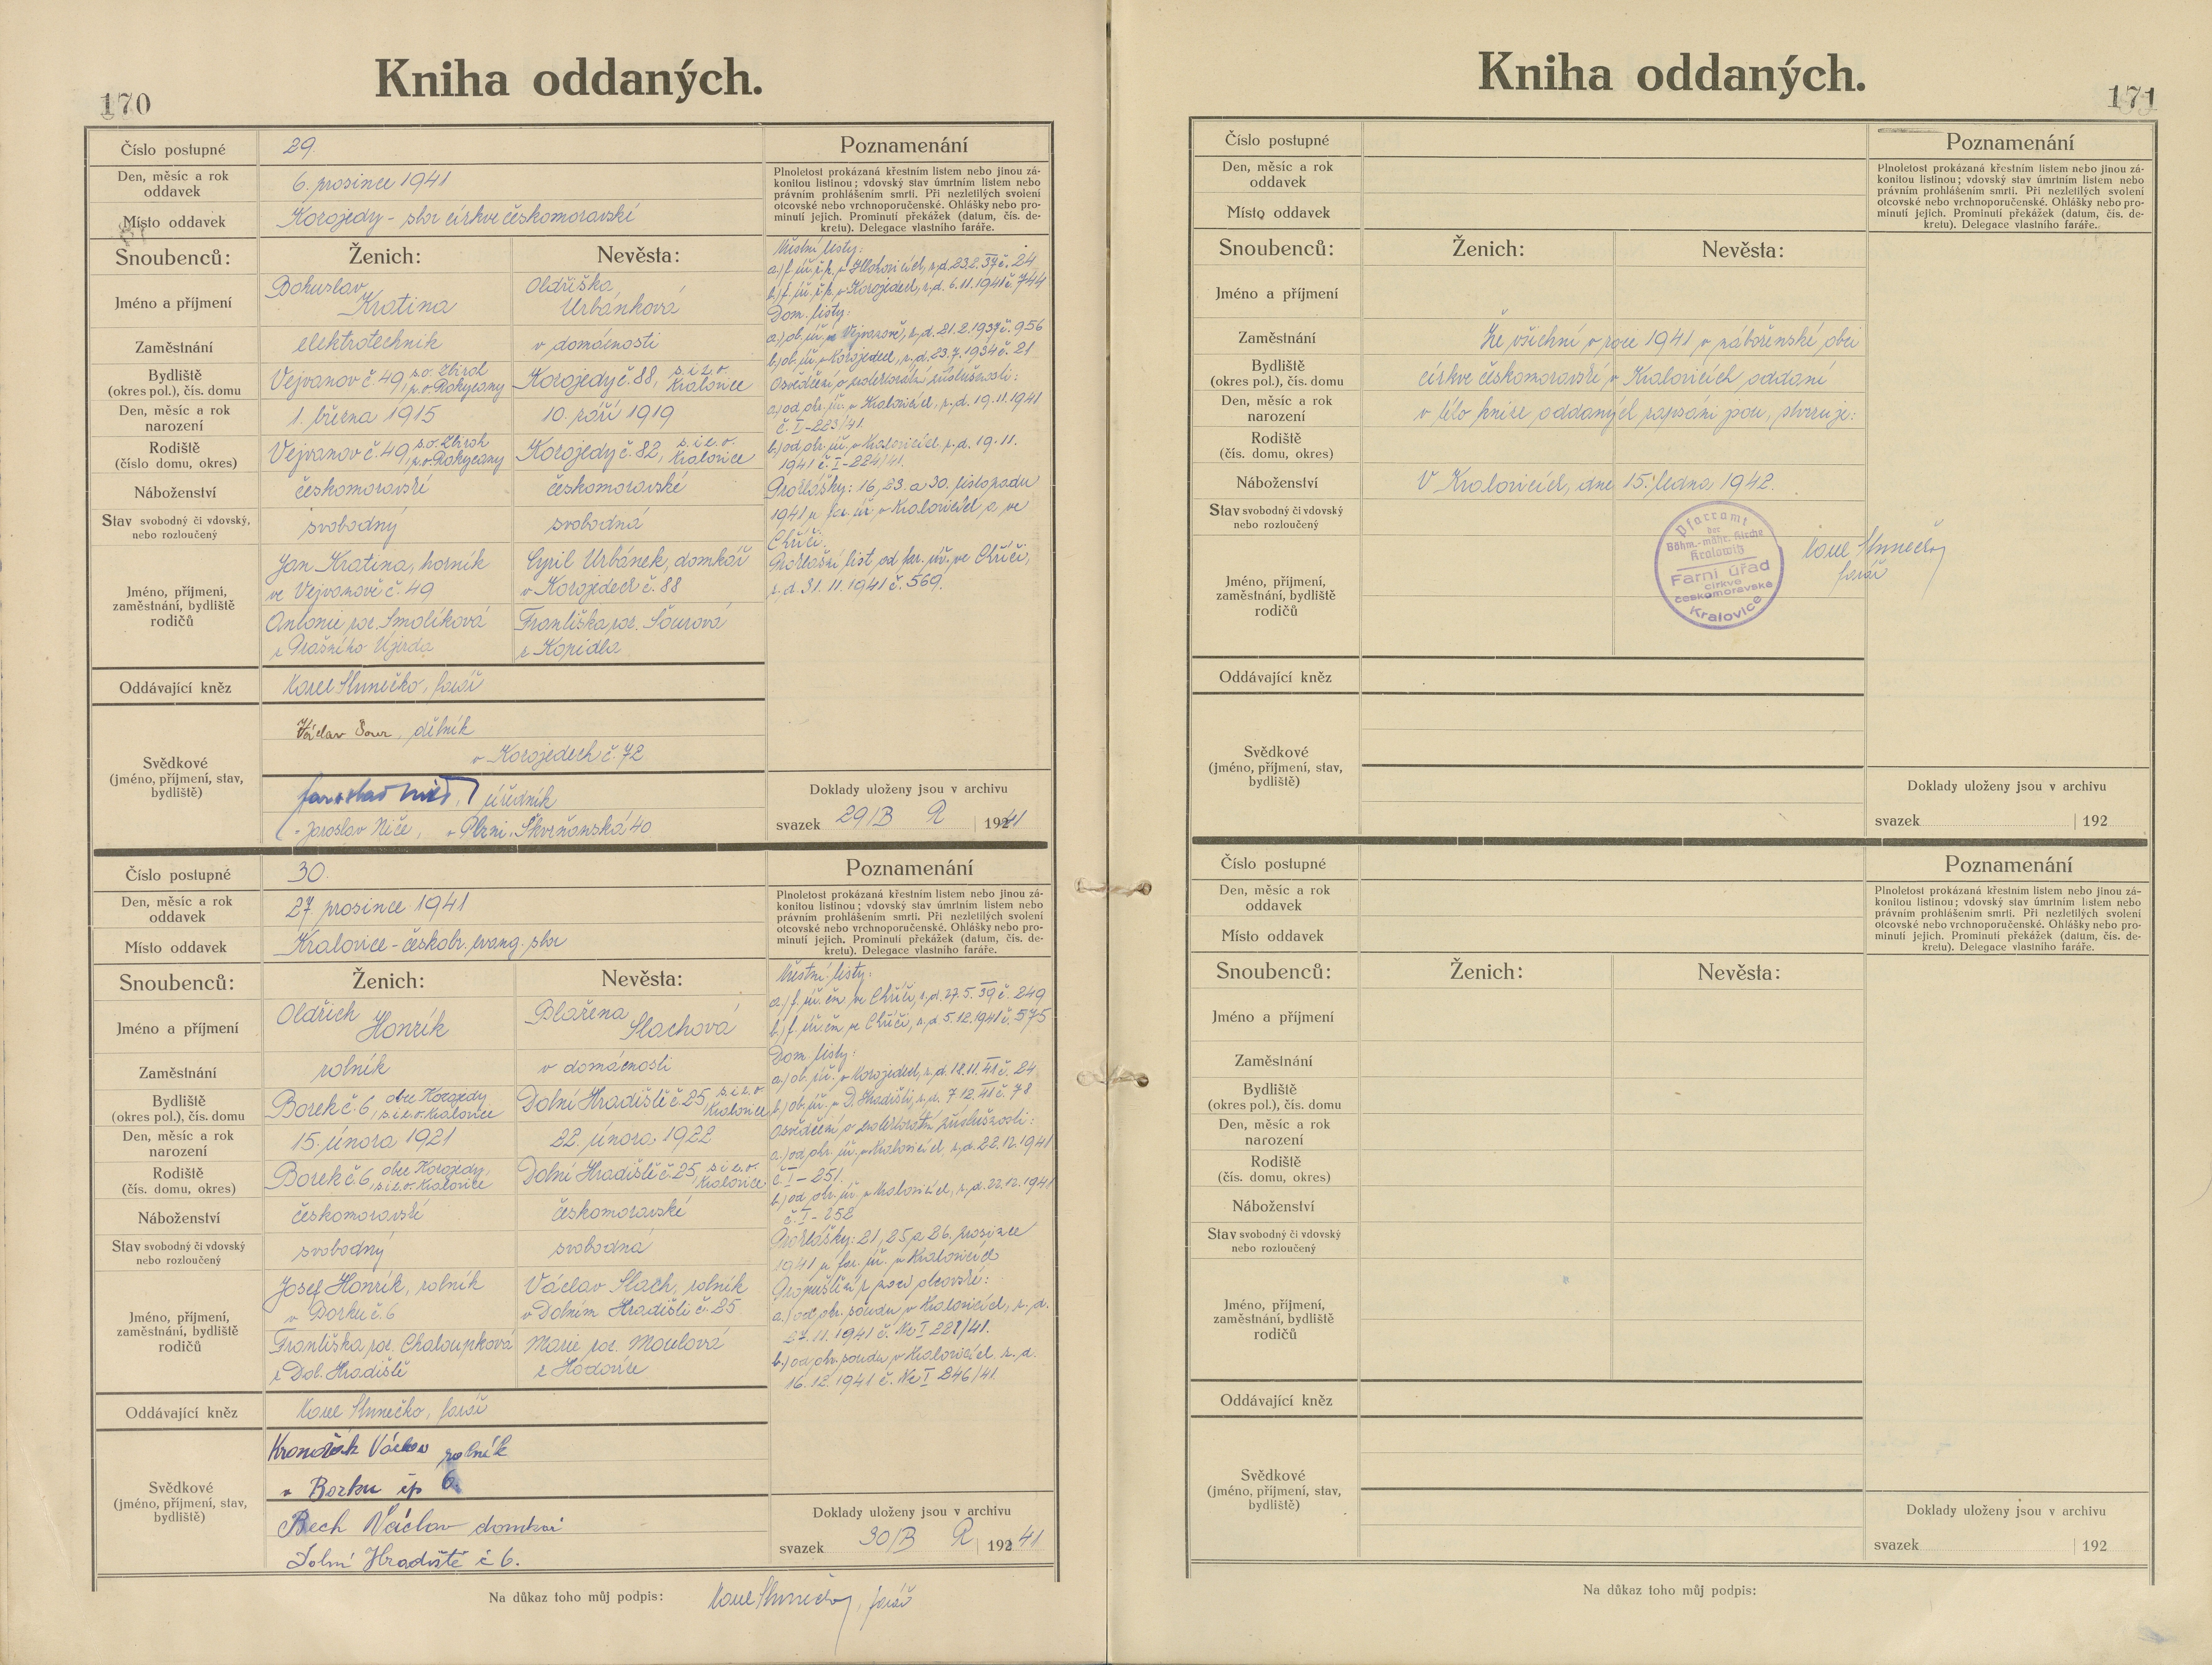 Kniha oddaných.
170
Číslo postupné
29.
Den, měsíc a rok
oddavek
6. prosince 1941
Místo oddavek
Korojedy - sbor církve českomoravské
Snoubenců:
Ženich:
Nevěsta:
Jméno a příjmení
Bohuslav
Kratina
Oldřiška
Urbánková
Zaměstnání
elektrotechnik
v domácnosti
Bydliště
(okres pol.), čís. domu
Vejvanov č. 49, s.o. Zbiroh
p.o. Rokycany
Korojedy č. 88, s. i z. o.
Kralovice
Den, měsíc a rok
narození
1. března 1915
10. září 1919
Rodiště
(číslo domu, okres)
Vejvanov č. 49, s.o. Zbiroh
p.o. Rokycany
Korojedy č. 82, s. i z. o.
Kralovice
Náboženství
českomoravské
českomoravské
Stav svobodný či vdovský,
nebo rozloučený
svobodný
svobodná
Jméno, příjmení,
zaměstnání, bydliště
rodičů
Jan Kratina, horník
ve Vejvanově č. 49
Antonie roz. Smolíková
z Prašného Újezda
Cyril Urbánek, domkář
v Korojedech č. 88
Františka roz. Sourová
z Kopidla
Oddávající kněz
Karel Slunečko, farář
Svědkové
(jméno, příjmení, stav,
bydliště)
Václav Sour, dělník
v Korojedech č. 72
úředník
Jaroslav Niče, v Plzni, Skvrňanská 40
Poznamenání
Plnoletost prokázaná křestním listem nebo jinou zá-
konitou listinou; vdovský stav úmrtním listem nebo
právním prohlášením smrti. Při nezletilých svolení
otcovské nebo vrchnoporučenské. Ohlášky nebo pro-
minutí jejich. Prominutí překážek (datum, čís. de-
kretu). Delegace vlastního faráře.
Křestní listy:
a.) f. úř. ř. k. v Mlečicích, z. d. 23.2.37 č. 24
b.) f. úř. ř. k. v Korojedech, z. d. 6.11.1941 č. 744
Dom. listy:
a.) ob. úř. ve Vejvanově, z. d. 21.2.1937 č. 956
b.) ob. úř. v Korojedech, z. d. 23.7.1934 č. 21
Osvědčení o protektorátní příslušnosti:
a.) od okr. úř. v Kralovicích, z. d. 19.11.1941
č. I-223/41.
b.) od okr. úř. v Kralovicích, z. d. 19.11.
1941 č. I-224/41.
Prohlášky: 16., 23. a 30. listopadu
1941 u far. úř. v Kralovicích a ve
Chříči.
Prohlášní list od far. úř. ve Chříči,
z. d. 31.11.1941 č. 569.
Doklady uloženy jsou v archivu
svazek 29/B R 1941
Číslo postupné
30.
Den, měsíc a rok
oddavek
27. prosince 1941
Místo oddavek
Kralovice - českobr. evang. sbor
Snoubenců:
Ženich:
Nevěsta:
Jméno a příjmení
Oldřich
Honzík
Blažena
Slachová
Zaměstnání
rolník
v domácnosti
Bydliště
(okres pol.), čís. domu
Borek č. 6, obec Korojedy
s. i z. o. Kralovice
Dolní Hradiště č. 25, s. i z. o.
Kralovice
Den, měsíc a rok
narození
15. února 1921
22. února 1922
Rodiště
(čís. domu, okres)
Borek č. 6, obec Korojedy,
s. i z. o. Kralovice
Dolní Hradiště č. 25, s. i z. o.
Kralovice
Náboženství
českomoravské
českomoravské
Stav svobodný či vdovský
nebo rozloučený
svobodný
svobodná
Jméno, příjmení,
zaměstnání, bydliště
rodičů
Josef Honzík, rolník
v Borku č. 6
Františka roz. Chaloupková
z Dol. Hradiště
Václav Slach, rolník
v Dolním Hradišti č. 25
Marie roz. Moulová
z Hodovíze
Oddávající kněz
Karel Slunečko, farář
Svědkové
(jméno, příjmení, stav,
bydliště)
Václav rolník
v Borku čp 6.
Bech Václav domkař
Dolní Hradiště č 6.
Poznamenání
Plnoletost prokázaná křestním listem nebo jinou zá-
konitou listinou; vdovský stav úmrtním listem nebo
právním prohlášením smrti. Při nezletilých svolení
otcovské nebo vrchnoporučenské. Ohlášky nebo pro-
minutí jejich. Prominutí překážek (datum, čís. de-
kretu). Delegace vlastního faráře.
Křestní listy:
a.) f. úř. čm. ve Chříči, z. d. 27.5.39 č. 249
b.) f. úř. čm. ve Chříči, z. d. 5.12.1941 č. 575
Dom. listy:
a.) ob. úř. v Korojedech, z. d. 18.11.41 č. 24
b.) ob. úř. v D. Hradišti, z. d. 7.12.41 č. 78
Osvědčení o protektorátní příslušnosti:
a.) od okr. úř. v Kralovicích, z. d. 22.12.1941
č. I-251.
b.) od okr. úř. v Kralovicích, z. d. 22.12.1941
č. I-252
Prohlášky: 21., 25. a 26. prosince
1941 u far. úř. v Kralovicích
Propuštění z moci otcovské:
a.) od okr. soudu v Kralovicích, z. d.
27.11.1941 č. Nc I 228/41.
b.) od okr. soudu v Kralovicích z. d.
16.12.1941 č. Nc I 246/41.
Doklady uloženy jsou v archivu
svazek 30/B R 1941
Na důkaz toho můj podpis: Karel Slunečko, farář
Kniha oddaných.
171
Číslo postupné
Den, měsíc a rok
oddavek
Místo oddavek
Snoubenců:
Ženich:
Nevěsta:
Jméno a příjmení
Zaměstnání
Bydliště
(okres pol.), čís. domu
Den, měsíc a rok
narození
Rodiště
(číslo domu, okres)
Náboženství
Stav svobodný či vdovský
nebo rozloučený
Jméno, příjmení,
zaměstnání, bydliště
rodičů
Oddávající kněz
Svědkové
(jméno, příjmení, stav,
bydliště)
Že všichni v roce 1941 v náboženské obci
církve českomoravské v Kralovicích oddaní
v této knize oddaných zapsáni jsou, stvrzuje:
V Kralovicích, dne 15. ledna 1942.
Pfarramt
der
Böhm.-mähr. Kirche
Kralowitz
Farní úřad
církve
českomoravské
Kralovice
Karel Slunečko
farář
Poznamenání
Plnoletost prokázaná křestním listem nebo jinou zá-
konitou listinou; vdovský stav úmrtním listem nebo
právním prohlášením smrti. Při nezletilých svolení
otcovské nebo vrchnoporučenské. Ohlášky nebo pro-
minutí jejich. Prominutí překážek (datum, čís. de-
kretu). Delegace vlastního faráře.
Doklady uloženy jsou v archivu
svazek 192
Číslo postupné
Den, měsíc a rok
oddavek
Místo oddavek
Snoubenců:
Ženich:
Nevěsta:
Jméno a příjmení
Zaměstnání
Bydliště
(okres pol.), čís. domu
Den, měsíc a rok
narození
Rodiště
(čís. domu, okres)
Náboženství
Stav svobodný či vdovský
nebo rozloučený
Jméno, příjmení,
zaměstnání, bydliště
rodičů
Oddávající kněz
Svědkové
(jméno, příjmení, stav,
bydliště)
Poznamenání
Plnoletost prokázaná křestním listem nebo jinou zá-
konitou listinou; vdovský stav úmrtním listem nebo
právním prohlášením smrti. Při nezletilých svolení
otcovské nebo vrchnoporučenské. Ohlášky nebo pro-
minutí jejich. Prominutí překážek (datum, čís. de-
kretu). Delegace vlastního faráře.
Doklady uloženy jsou v archivu
svazek 192
Na důkaz toho můj podpis: